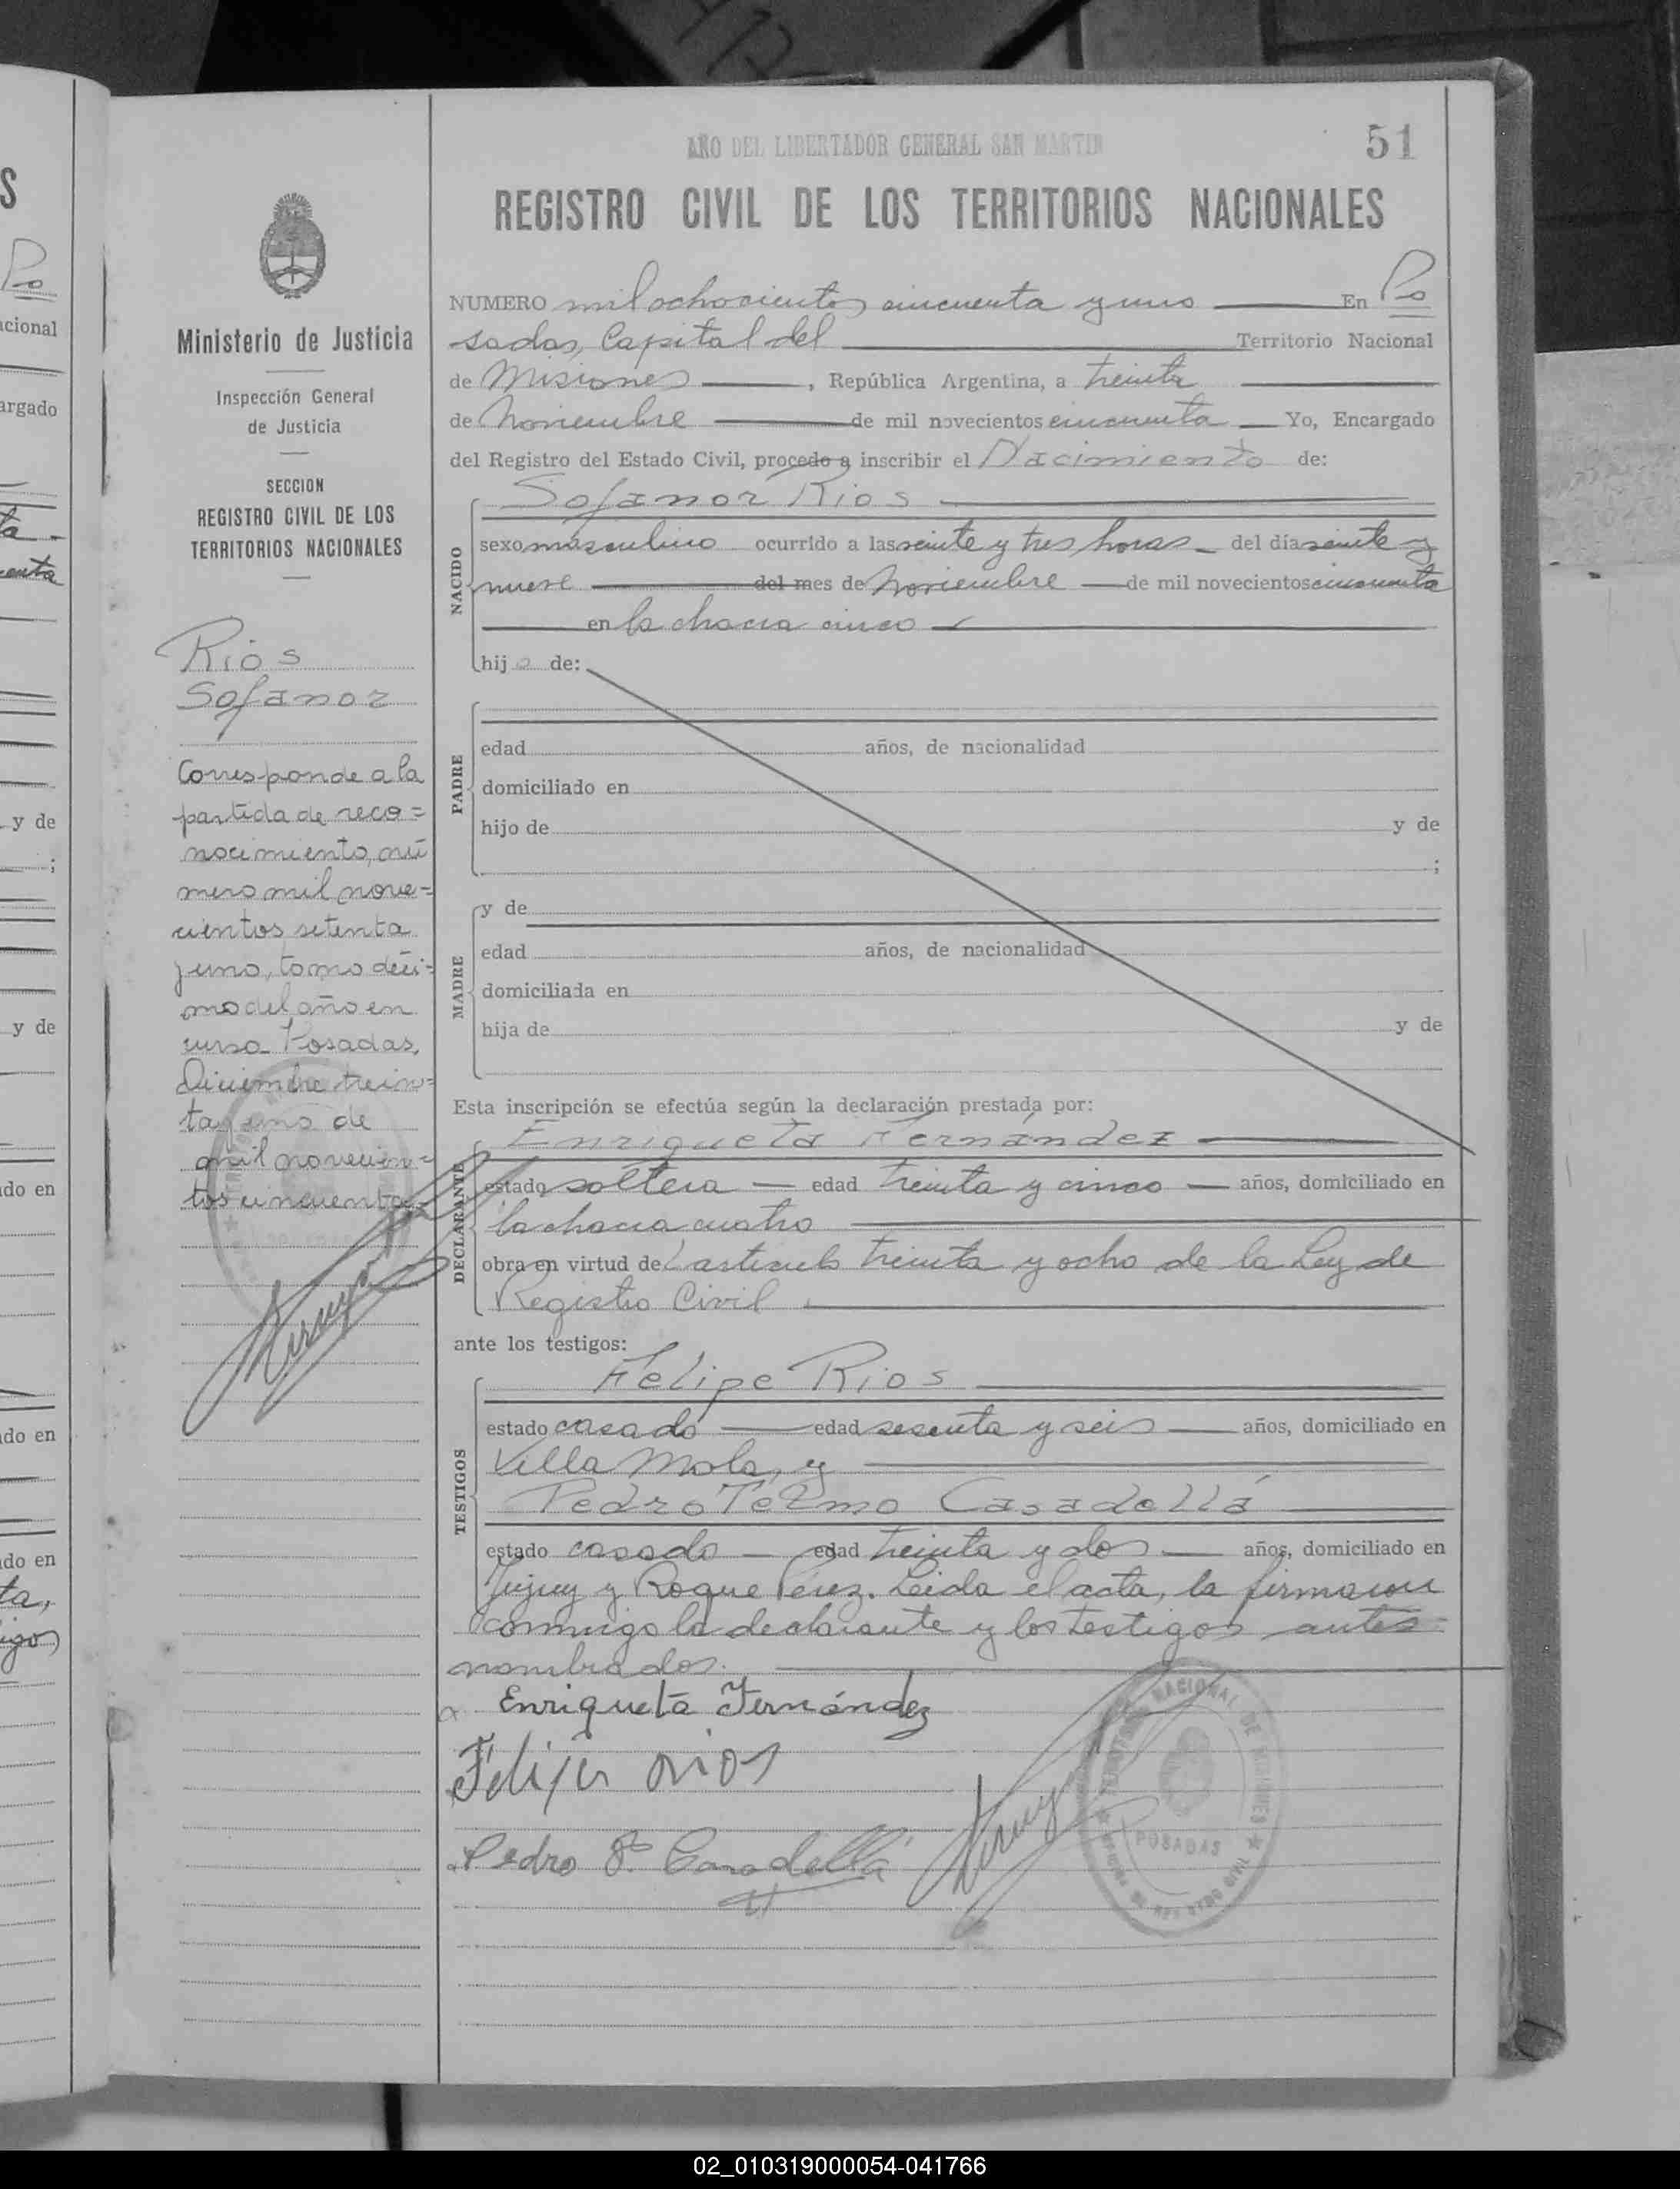 AÑO DEL LIBERTADOR GENERAL SAN MARTIN
51
REGISTRO CIVIL DE LOS TERRITORIOS NACIONALES
Ministerio de Justicia
Inspección General
de Justicia
SECCION
REGISTRO CIVIL DE LOS
TERRITORIOS NACIONALES
Rios
Sofanor
Corresponde a la
partida de reco=
nocimiento, nú
mero mil nove=
cientos setenta
y uno, tomo déci=
mo del año en
curso Posadas,
Diciembre trein=
ta y uno de
mil novecien=
tos cincuenta
NUMERO mil ochocientos cincuenta y uno En Po
sadas, Capital del Territorio Nacional
de Misiones, República Argentina, a treinta
de Noviembre de mil novecientos cincuenta Yo, Encargado
del Registro del Estado Civil, procedo a inscribir el Nacimiento de:
Sofanor Rios
NACIDO
sexo masculino ocurrido a las veinte y tres horas del día veinte y
nueve del mes de Noviembre de mil novecientos cincuenta
en la chacra cinco
hijo de:
PADRE
edad años, de nacionalidad
domiciliado en
hijo de y de
;
MADRE
y de
edad años, de nacionalidad
domiciliada en
hija de y de
Esta inscripción se efectúa según la declaración prestada por:
Enriqueta Fernández
DECLARANTE
estado soltera edad treinta y cinco años, domiciliado en
la chacra cuatro
obra en virtud del articulo treinta y ocho de la Ley de
Registro Civil
ante los testigos:
Felipe Rios
TESTIGOS
estado casado edad sesenta y seis años, domiciliado en
Villa Mola, y
Pedro Telmo Casadellá
estado casado edad treinta y dos años, domiciliado en
Jujuy y Roque Pérez. Leida el acta, la firmaron
conmigo la declarante y los testigos antes
nombrados.
Enriqueta Fernández
Felipe rios
Pedro T. Casadellá
NACIONAL DE MISIONES
POSADAS
02_010319000054-041766